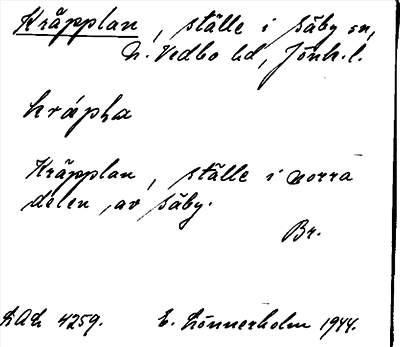 Kräpplan, ställe i Säby sn,
N. Vedbo hd, Jönk. l.
kräpla
Kräpplan, ställe i norra
delen av Säby.
Br.
4259. E. Lönnerholm 1944.